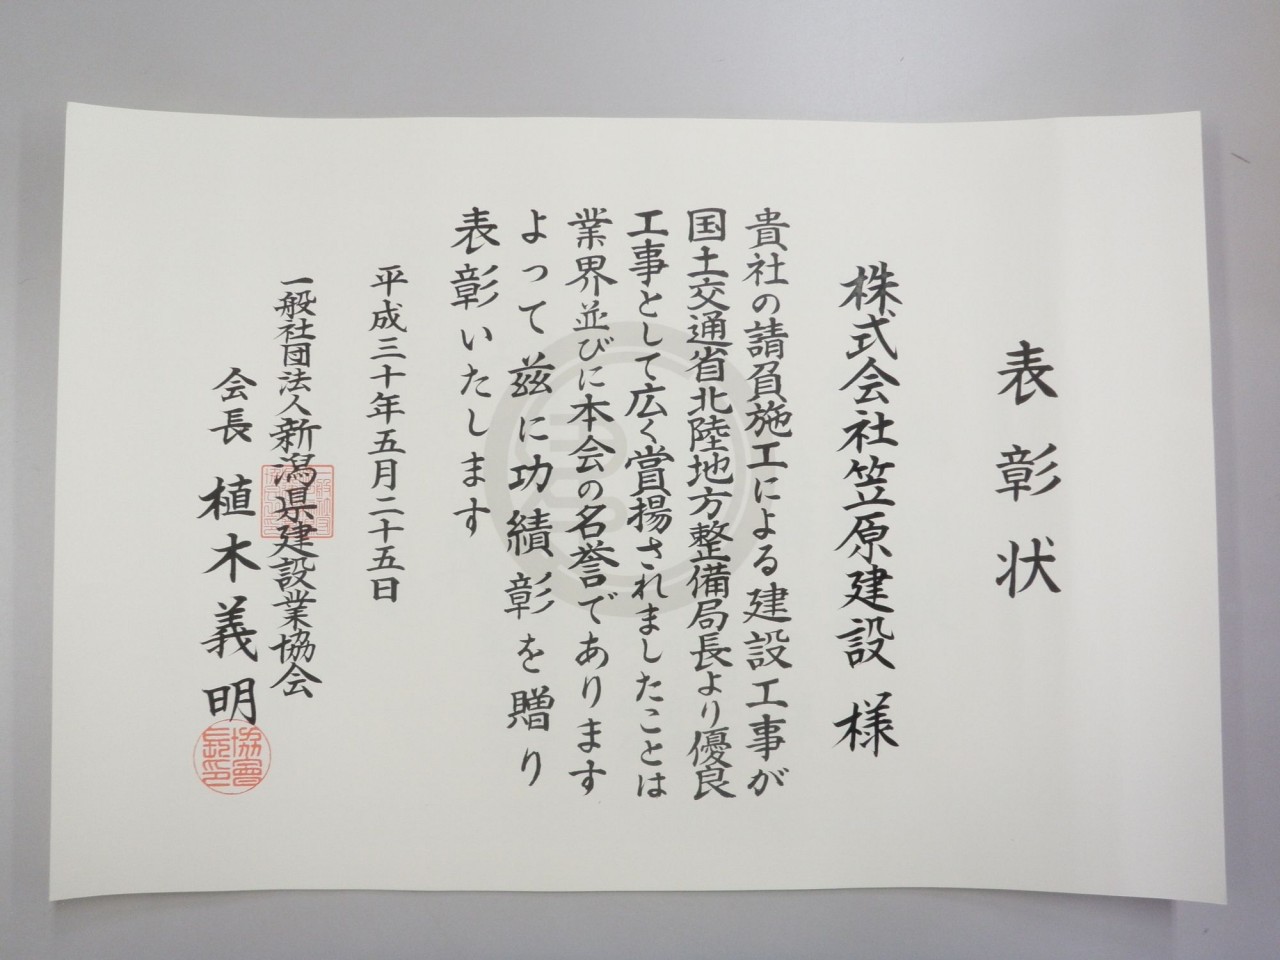 表彰状
株式会社笠原建設 様
貴社の請負施工による建設工事が
国土交通省北陸地方整備局長より優良
工事として広く賞揚されましたことは
業界並びに本会の名誉であります
よって茲に功績彰を贈り
表彰いたします
平成三十年五月二十五日
一般社団法人新潟県建設業協会
会長 植木義明
協會長印